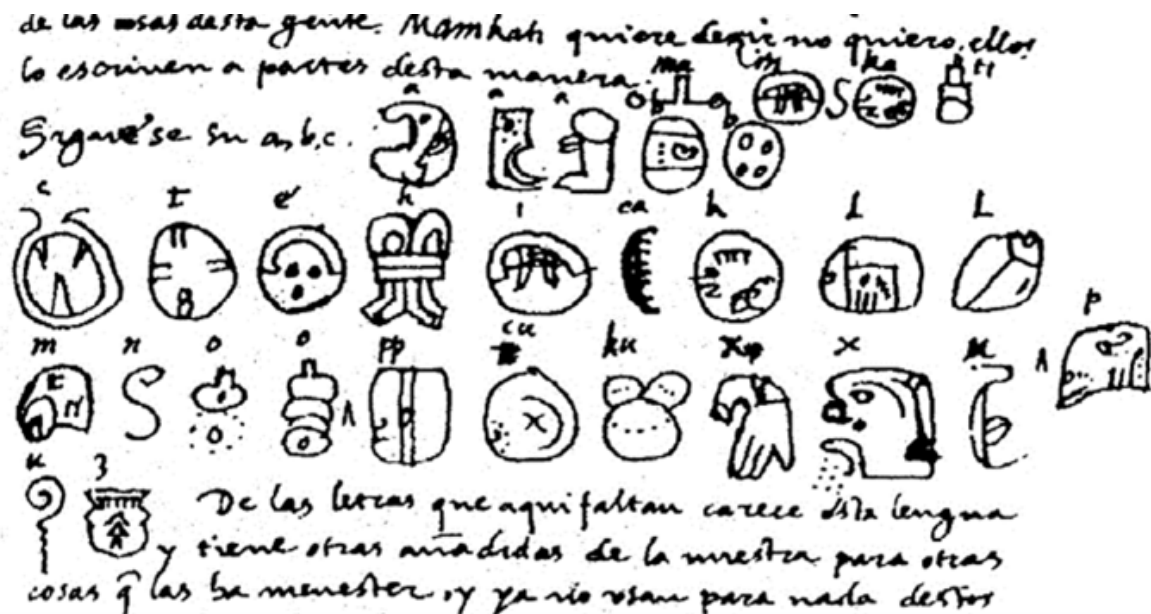 de las cosas desta gente. Mamkati quiere decir no quiero, ellos
lo escriven a partes desta manera: ma i n ka ti
Siguese su a, b, c. a a a b b
c t e h i ca k l l
m n o o pp cu ku x x u p
u z De las letras que aqui faltan carece esta lengua
y tiene otras añadidas de la nuestra para otras
cosas q̄ las ha menester, y ya no usan para nada destos